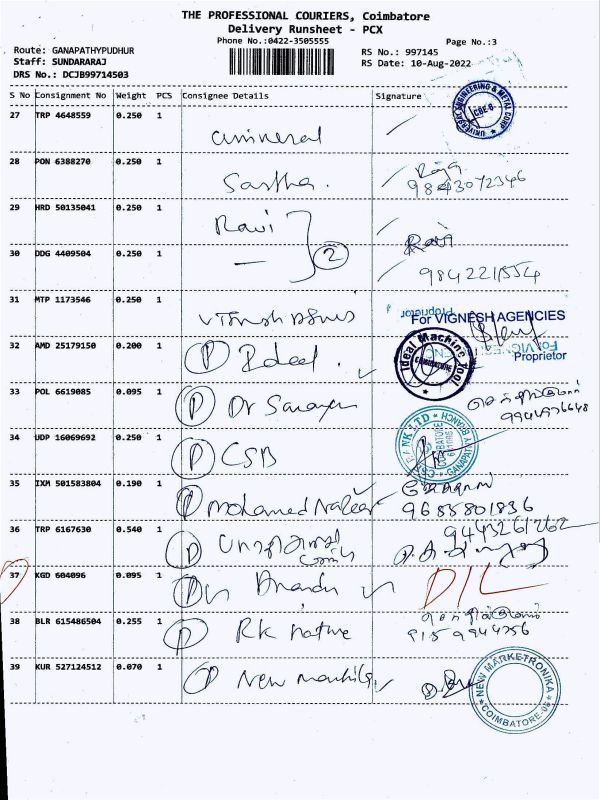 THE PROFESSIONAL COURIERS, Coimbatore
Delivery Runsheet - PCX
Phone No.:0422-3505555
Page No.:3
Route: GANAPATHYPUDHUR
Staff: SUNDARARAJ
DRS No.: DCJB99714503
RS No.: 997145
RS Date: 10-Aug-2022
S No Consignment No Weight PCS Consignee Details Signature
27 TRP 4648559 0.250 1
UNIVERSAL ENGINEERING & METAL CORP CBE-6
28 PON 6388270 0.250 1 Sastha. Raja
9843072346
29 HRD 50135041 0.250 1 Ravi
30 DDG 4409504 0.250 1 — 2 Ravi
31 MTP 1173546 0.250 1
For VIGNESH AGENCIES
Proprietor
32 AMD 25179150 0.200 1 P Ideal.
Ideal Machine Tool COIMBATORE
33 POL 6619085 0.095 1 P Dr
34 UDP 16069692 0.250 1 P CSB
CSB BANK LTD GANAPATHY BRANCH COIMBATORE
35 IXM 501583804 0.190 1 P Mohamed
9685801836
36 TRP 6167630 0.540 1 P
9443261262
37 KGD 604096 0.095 1 D/L
38 BLR 615486504 0.255 1 P RK native
39 KUR 527124512 0.070 1 P New
NEW MARKETRONIKA COIMBATORE